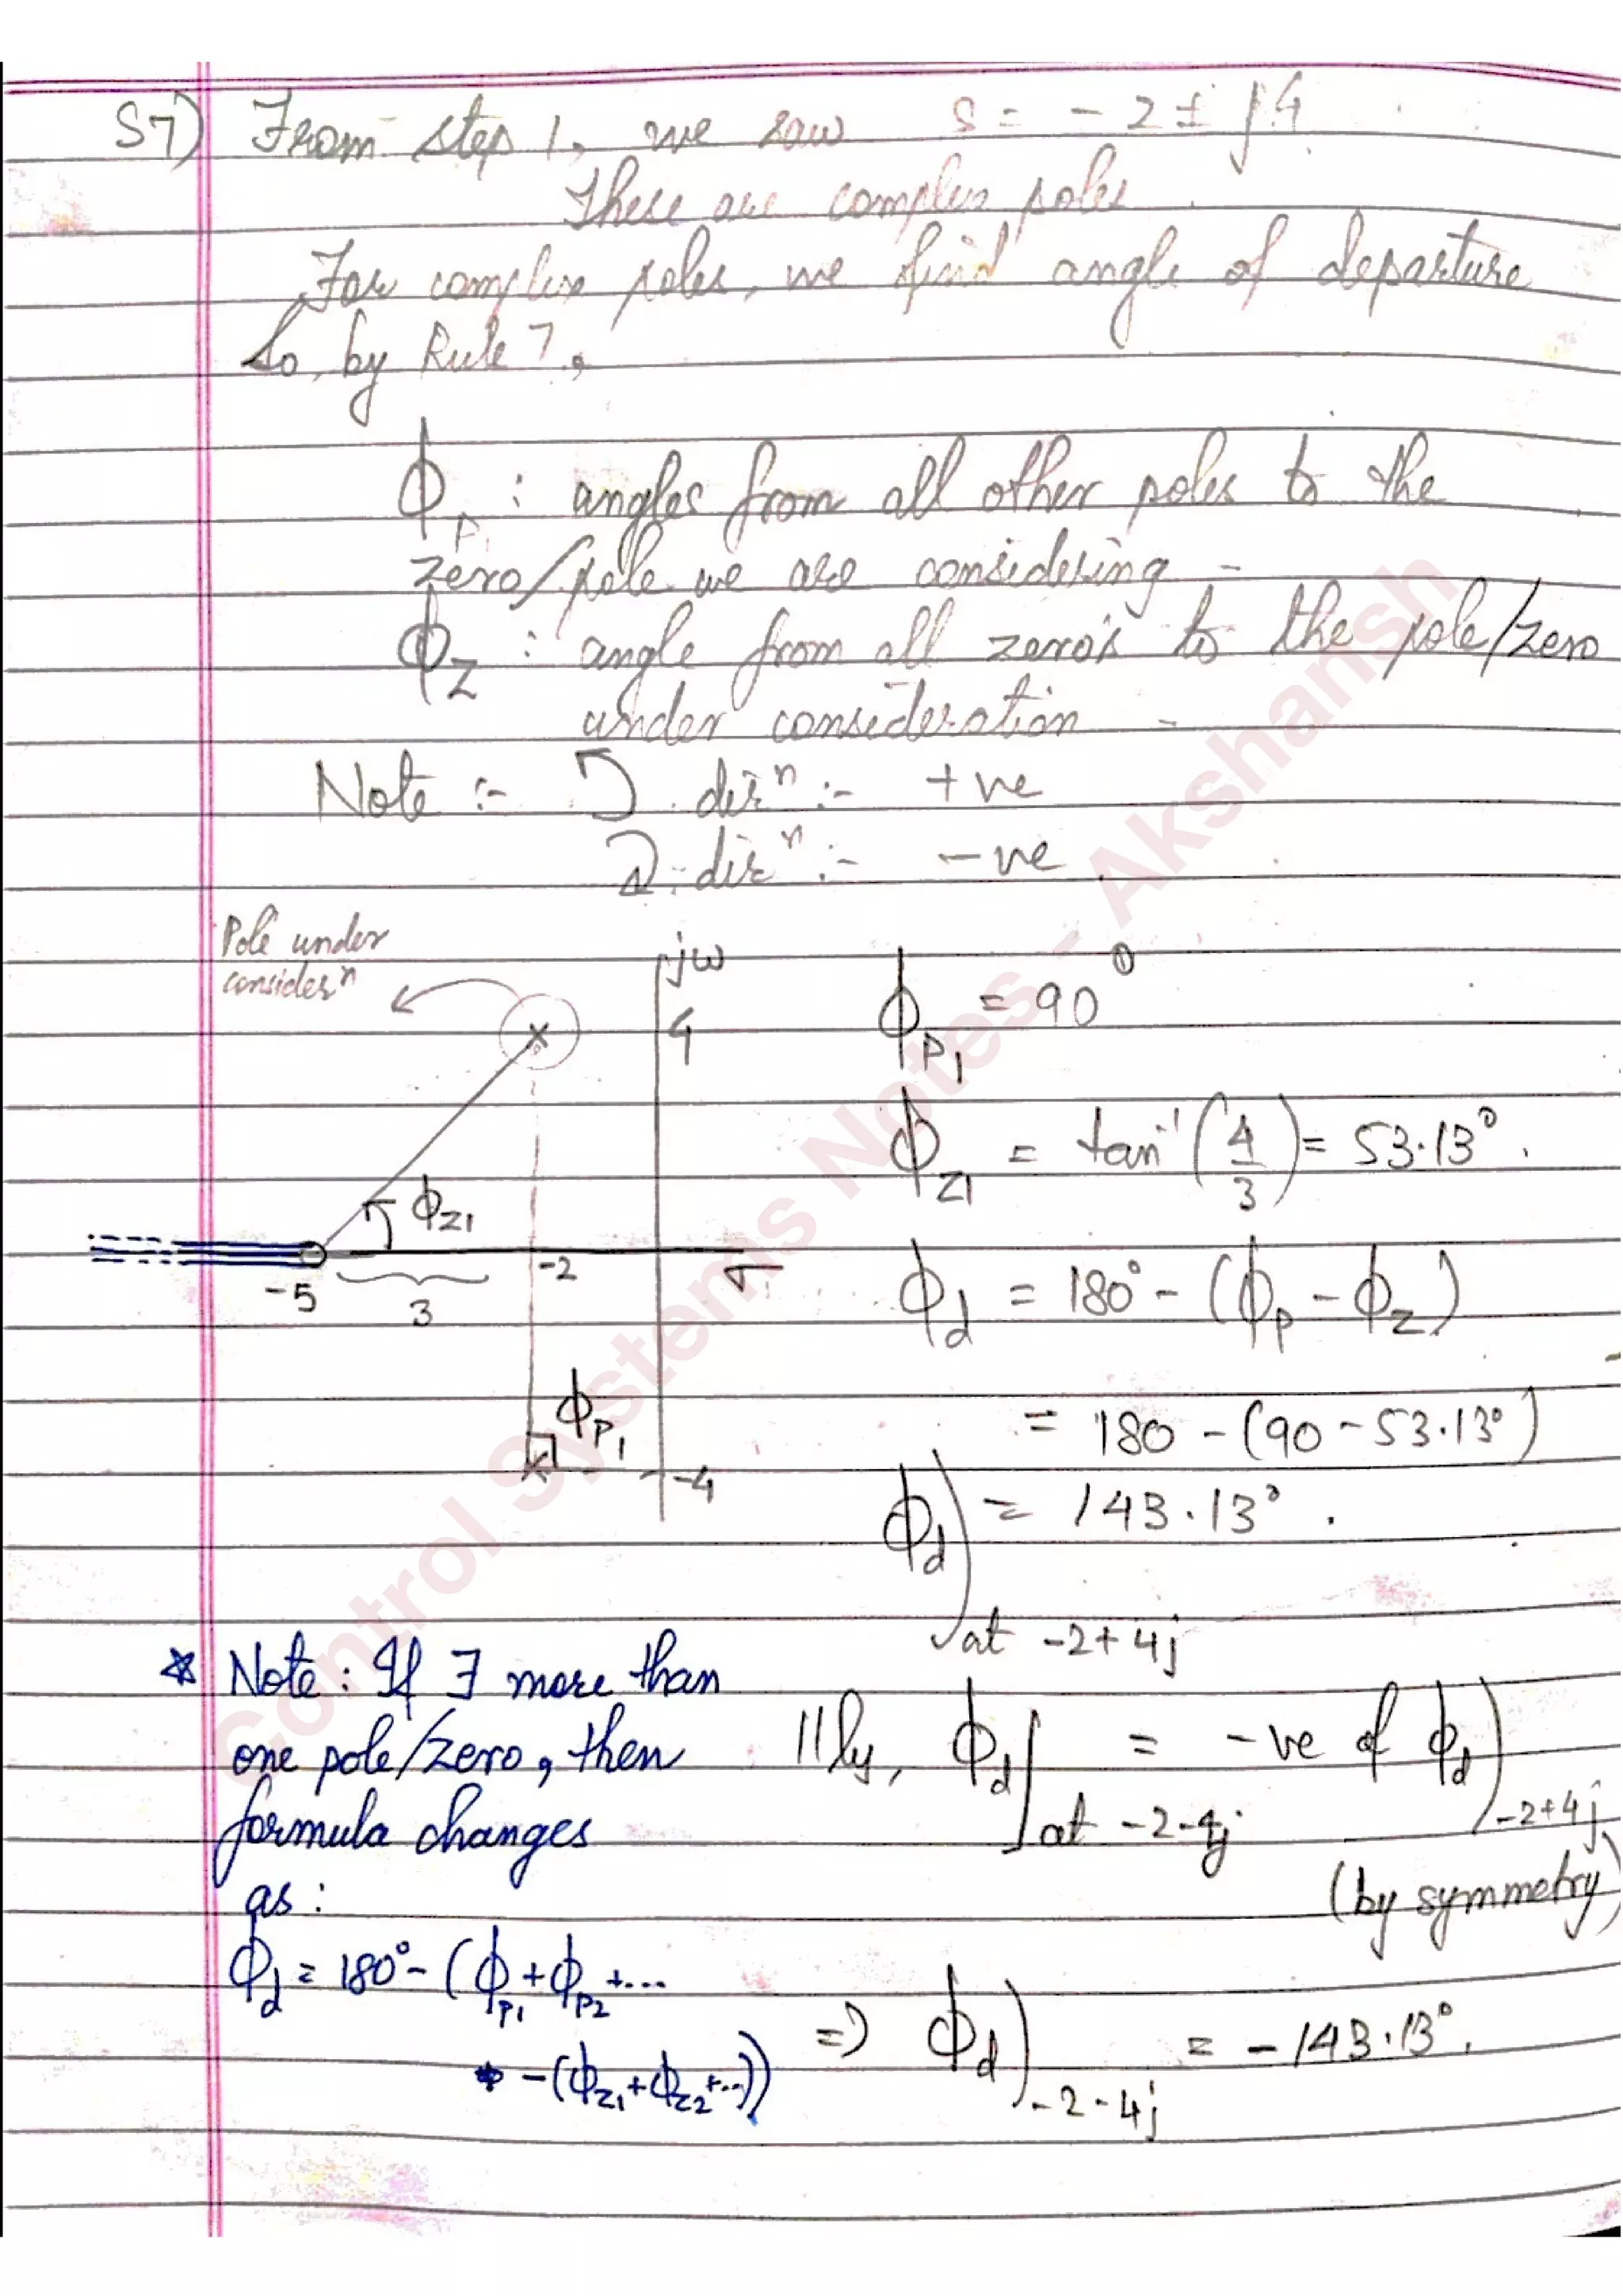 S7) From step 1, we saw s = -2 ± j4
These are complex poles.
For complex poles, we find angle of departure
So, by Rule 7,
ϕP : angles from all other poles to the
zero/pole we are considering -
ϕZ : angle from all zero's to the pole/zero
under consideration -
Note :- ↺ dirⁿ :- +ve
↻ dirⁿ :- -ve
Pole under
considerⁿ
jω
4
ϕZ1
-5
3
-2
σ
ϕP1
-4
ϕP1 = 90°
ϕZ1 = tan⁻¹(4/3) = 53.13°.
ϕd = 180° - (ϕP - ϕZ)
= 180 - (90 - 53.13°)
ϕd) at -2+4j = 143.13°.
* Note: If ∃ more than
one pole/zero, then
formula changes
as:
ϕd = 180° - (ϕP1 + ϕP2 + ...
- (ϕZ1 + ϕZ2 + ...))
||ly, ϕd] at -2-4j = -ve of ϕd) -2+4j
(by symmetry)
=> ϕd) -2-4j = -143.13°.
Control Systems Notes - Akshansh